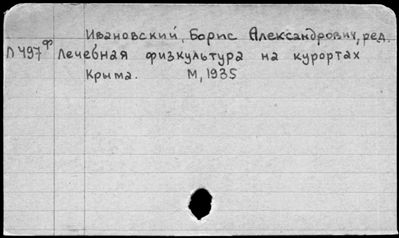 Ивановский, Борис Александрович, ред.
Л497ф Лечебная физкультура на курортах
Крыма. М, 1935